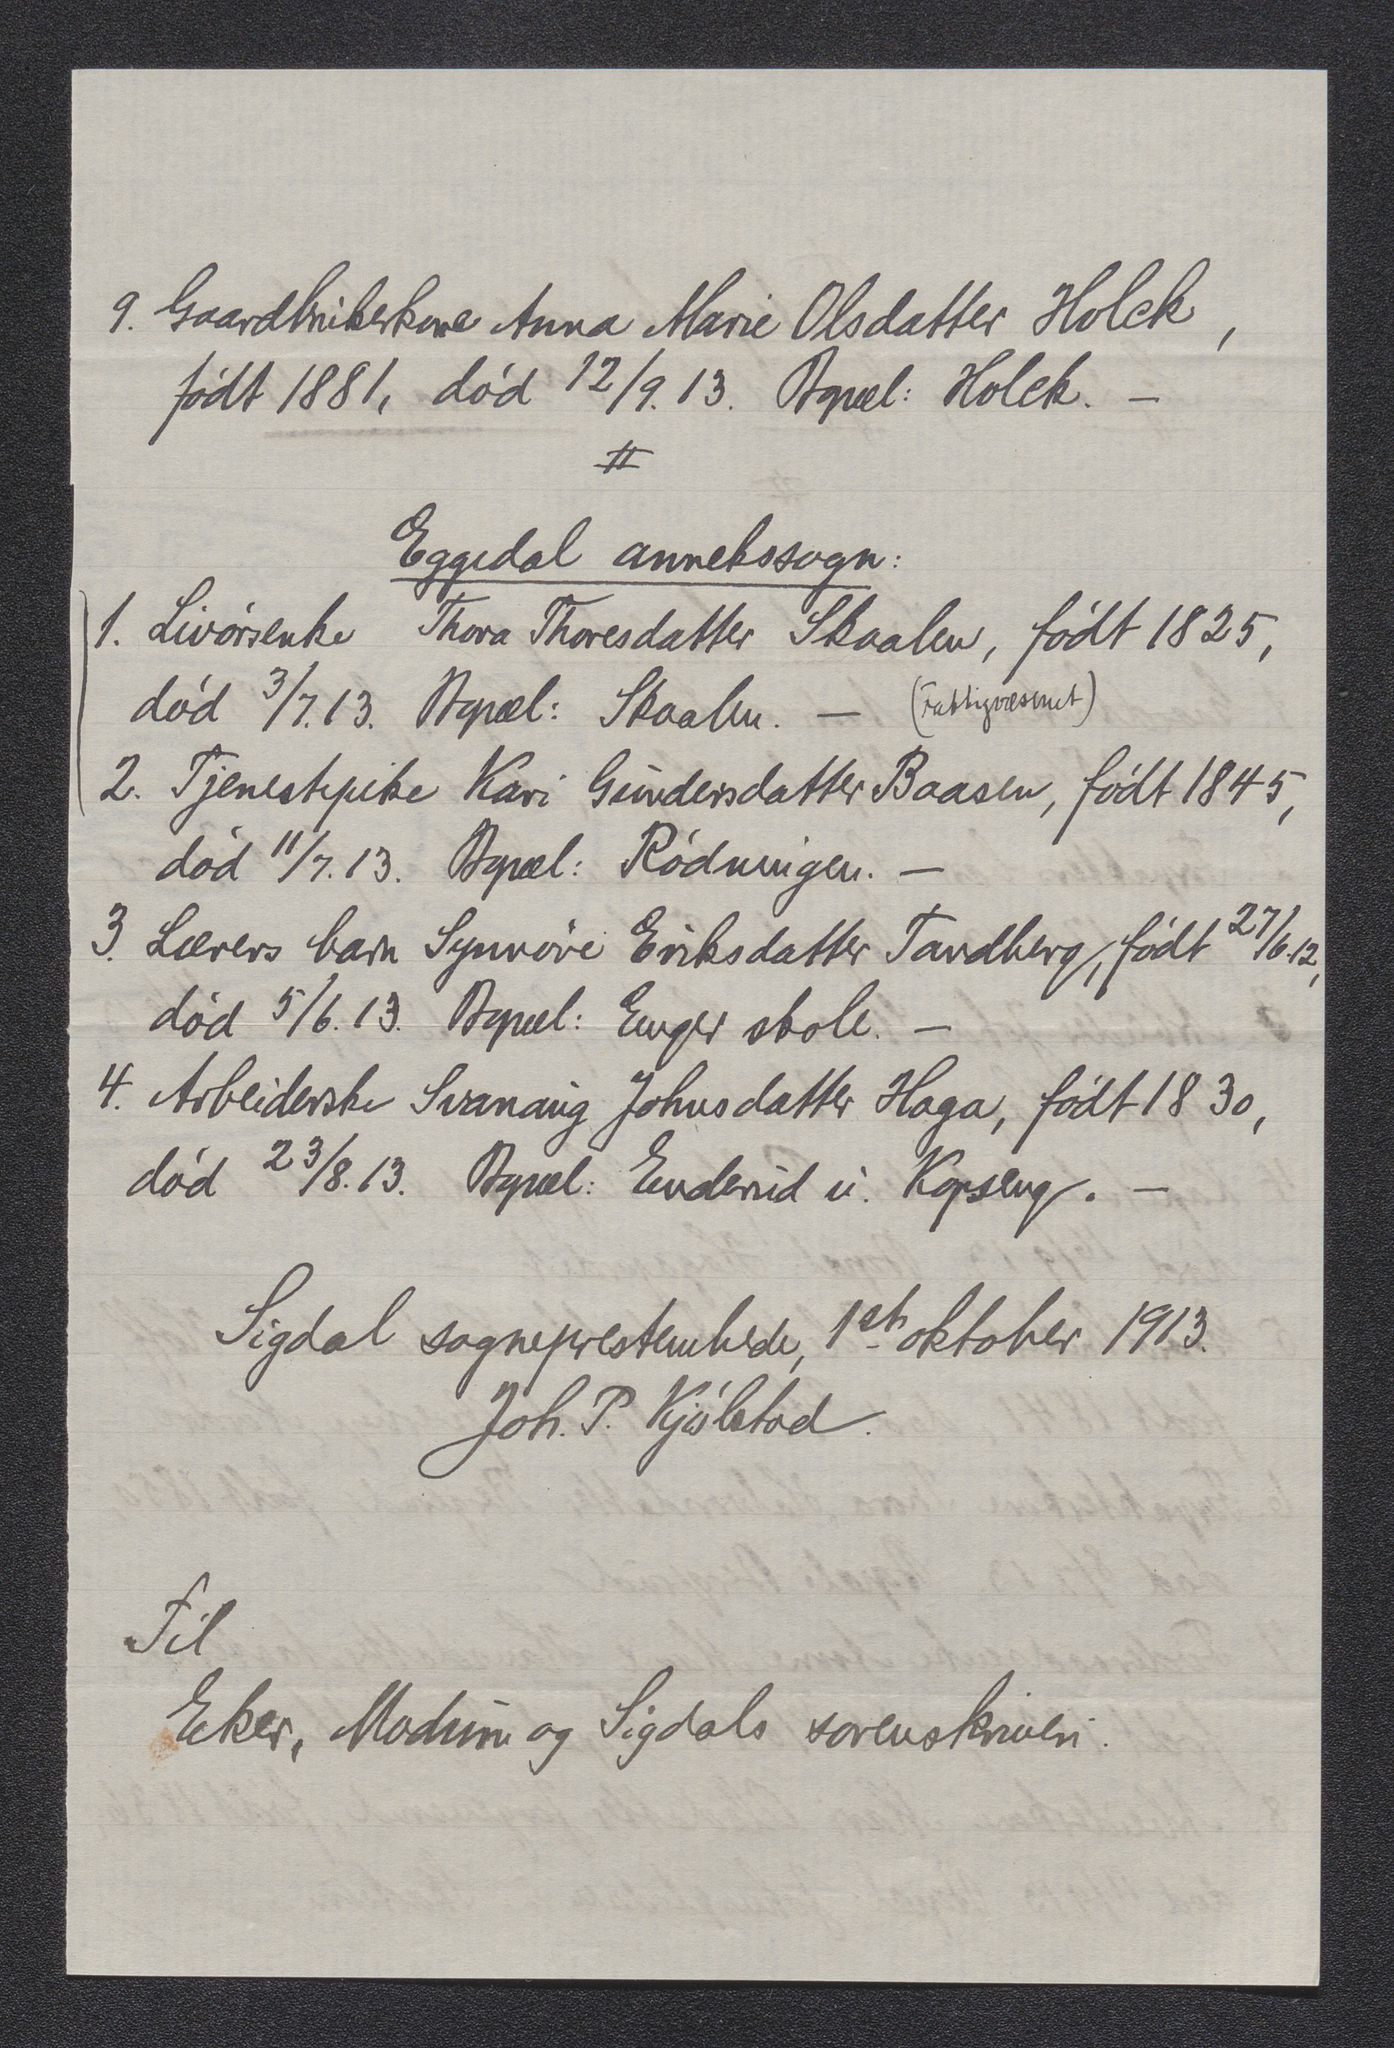 9. Gaardbrukerkone Anna Marie Olsdatter Holck,
født 1881, død 12/9.13. Bopæl: Holck. —
Eggedal annekssogn:
1. Livørsenke Thora Thoresdatter Skaalen, født 1825,
død 3/7.13. Bopæl: Skaalen. — (Fattigvæsenet)
2. Tjenestepike Kari Gundersdatter Baasen, født 1845,
død 11/7.13. Bopæl: Rødningen. —
3. Lærers barn Synnøve Eriksdatter Tandberg, født 27/6.12,
død 5/6.13. Bopæl: Enger skole. —
4. Arbeiderske Svanaug Johnsdatter Haga, født 1830,
død 23/8.13. Bopæl: Enderud u. Kopseng. —
Sigdal sogneprestembede, 1st oktober 1913.
Joh. P. Kjølstad.
Til
Eker, Modum og Sigdals sorenskriveri.